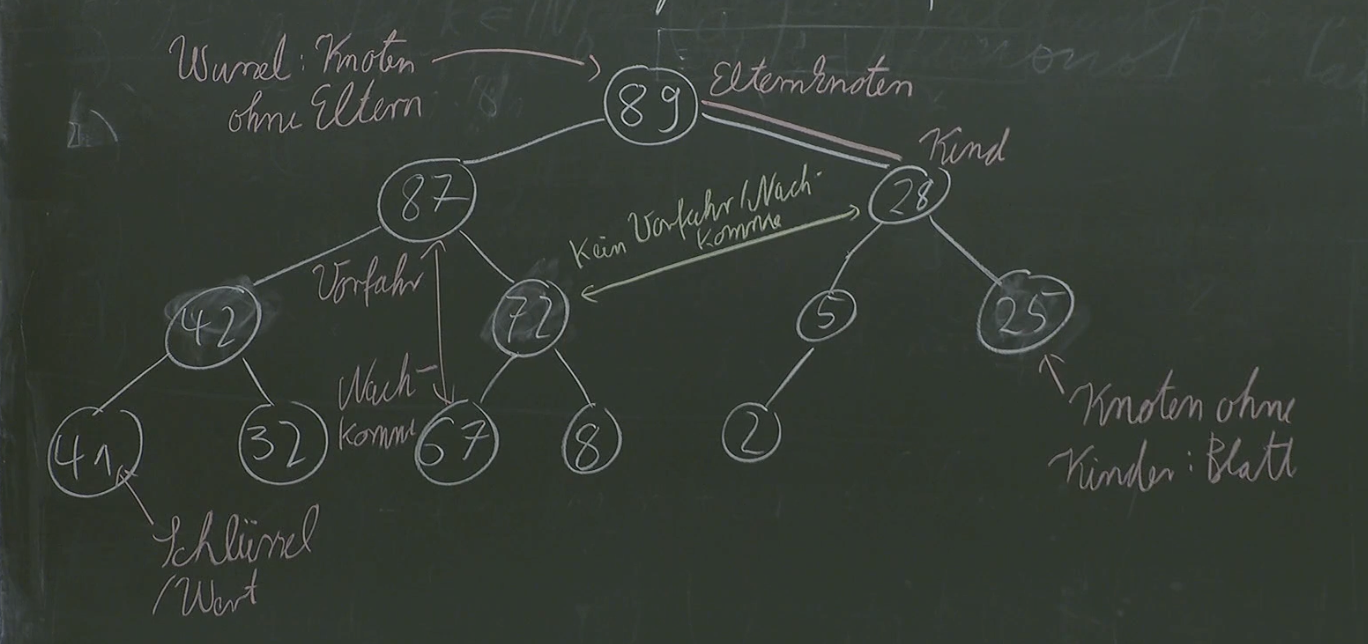 Wurzel: Knoten
ohne Eltern
89
Elternknoten
Kind
87
28
Kein Vorfahr/Nach-
komme
Vorfahr
42
72
5
25
Nach-
komme
41
32
67
8
2
Knoten ohne
Kinder: Blatt
Schlüssel
/Wert